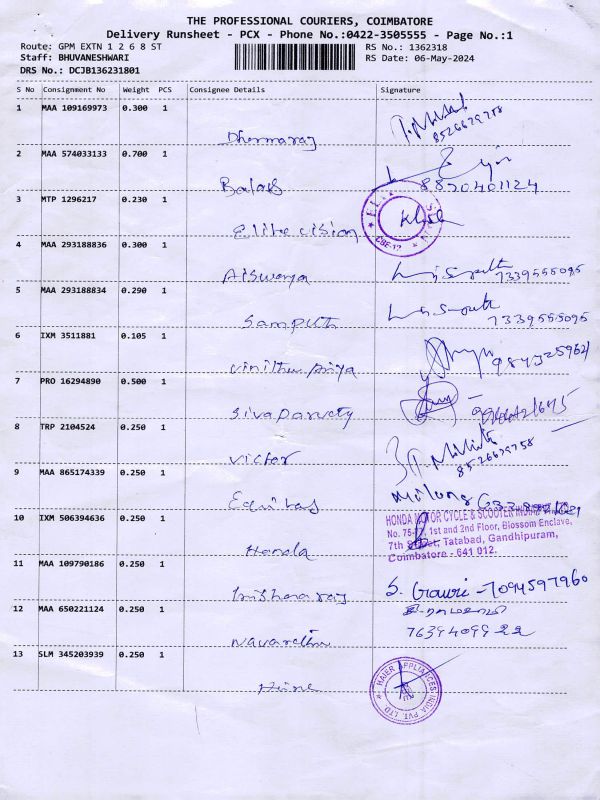 THE PROFESSIONAL COURIERS, COIMBATORE
Delivery Runsheet - PCX - Phone No.:0422-3505555 - Page No.:1
Route: GPM EXTN 1 2 6 8 ST RS No.: 1362318
Staff: BHUVANESHWARI RS Date: 06-May-2024
DRS No.: DCJB136231801
S No Consignment No Weight PCS Consignee Details Signature
1 MAA 109169973 0.300 1
Dharmaraj
2 MAA 574033133 0.700 1
Balaji 8870401124
3 MTP 1296217 0.230 1
Elite vision
CBE-12
4 MAA 293188836 0.300 1
Aiswarya 7339555095
5 MAA 293188834 0.290 1
Sampath 7339555095
6 IXM 3511881 0.105 1
Vinithu priya
7 PRO 16294890 0.500 1
Sivaparvaty
8 TRP 2104524 0.250 1
Victor 8526639758
9 MAA 865174339 0.250 1
Equitas
10 IXM 506394636 0.250 1
HONDA MOTOR CYCLE & SCOOTER INDIA
No. 75-77, 1st and 2nd Floor, Blossom Enclave,
7th Street, Tatabad, Gandhipuram,
Coimbatore - 641 012.
Honda
11 MAA 109790186 0.250 1
S. Gowri - 7094597960
12 MAA 650221124 0.250 1
Navarathna 7639409922
13 SLM 345203939 0.250 1
HAIER APPLIANCES INDIA PVT. LTD.